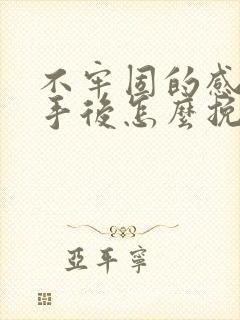 不牢固的感
手後怎麼挽
亞平寧